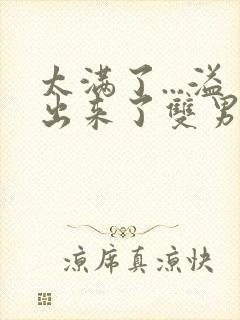 太满了…溢
出来了雙男
凉席真凉快